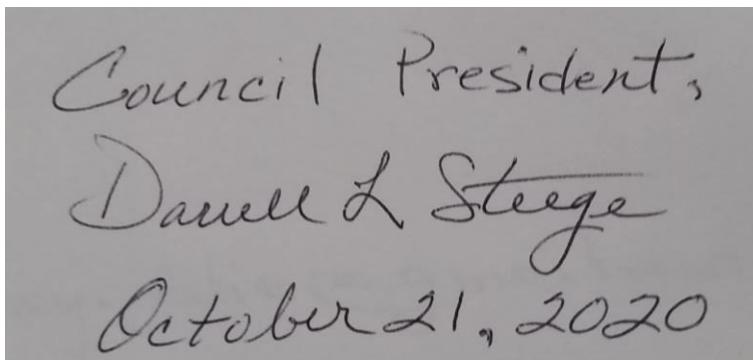 Council President,
Darrell L Steege
October 21, 2020